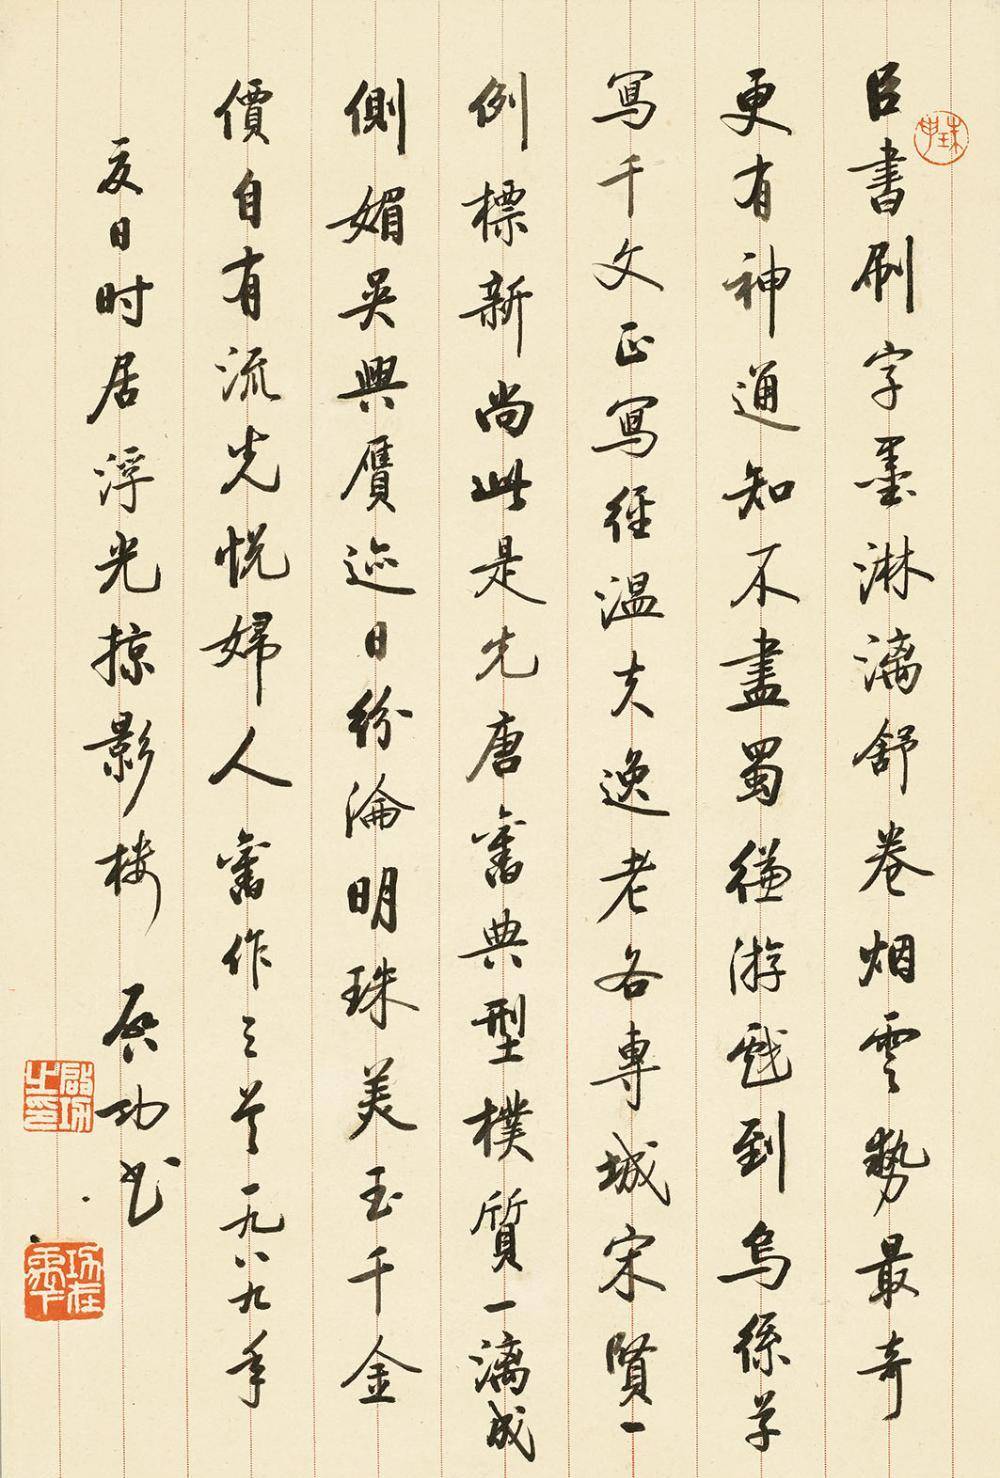 臣書刷字墨淋漓舒卷烟雲勢最奇
更有神通知不盡蜀縑游戲到烏絲草
寫千文正寫經温夫逸老各專城宋賢一
例標新尚此是先唐舊典型樸質一漓成
側媚吳興贗迹日紛淪明珠美玉千金
價自有流光悦婦人 舊作三首一九八九年
夏日时居浮光掠影楼 启功书
珠申
啟功之印
功在禹下